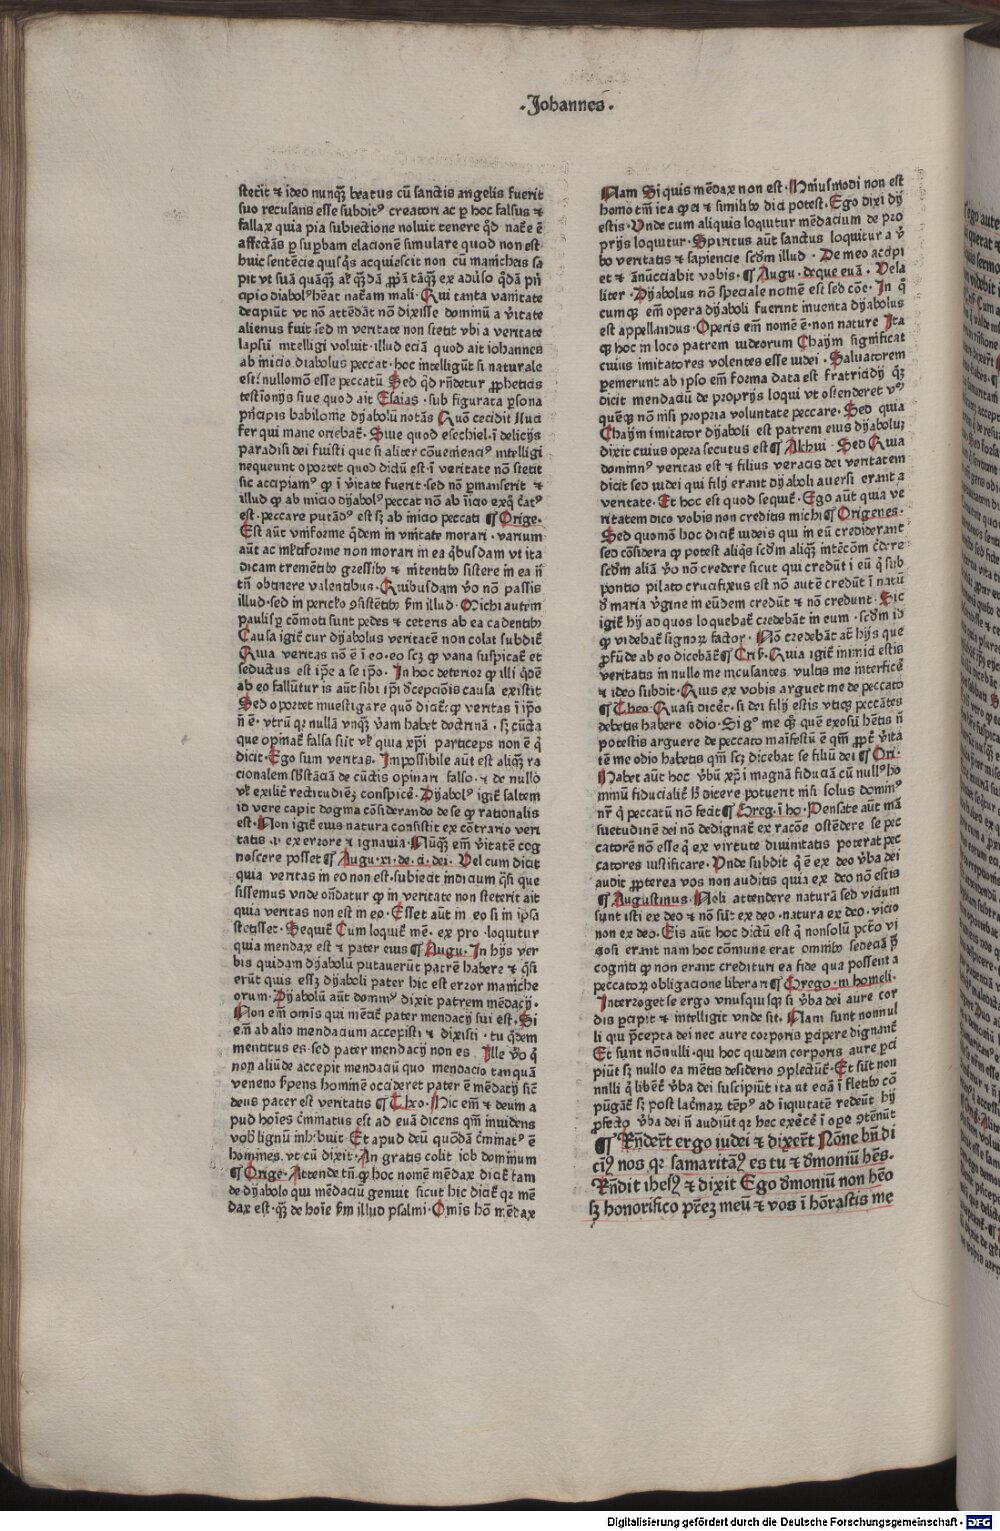 ·Johannes·
stetit ⁊ ideo nunq̄ꝫ beatus cū sanctis angelis fuerit
suo recusans esse subditꝰ creatori ac p hoc falsus ⁊
fallax quia pia subiectione noluit tenere qd̄ nat̄e ē
affectās p supbam elacionē simulare quod non est·
huic sentēcie quisqs acquiescit non cū manicheis sa
pit vt suā
cipio diabolꝰ heat nat̄am mali· Qui tanta vanitate
decapiūt vt nō attēdāt nō dixisse dominū a v̄itate
alienus fuit sed in veritate non stetit vbi a veritate
lapsū intelligi voluit· illud eciā quod ait iohannes
ab inicio diabolus peccat· hoc intelligūt si naturale
est· nullomō esse peccatū Sed qd̄ rn̄detur ꝓheticis
testionijs siue quod ait Esaias· sub figurata psona
pn̄cipis babilonie dyabolū notās Quō cecidit lluci
fer qui mane oriebat̄· Siue quod esechiel· ī delicijs
paradisi dei fuisti que si aliter cōueniencꝰ intelligi
nequeunt oportet quod dictū est· ī veritate nō stetit
sic accipiamꝰ ꝙ ī v̄itate fuerit· sed nō pmanserit ⁊
illud ꝙ ab inicio dyabolꝰ peccat nō ab īicio exq̄ c̄atꝰ
est· peccare putādꝰ est sꝫ ab inicio peccati ¶ Orige·
Est aūt vniforme q̄dem in vnitate morari· varium
aūt ac ml̄tiforme non morari in ea qbusdam vt ita
dicam trementibꝰ gressibꝰ ⁊ nitentibꝰ sistere in ea n̄
tn̄ obtinere valentibus· Quibusdam v̄o nō passis
illud· sed in periclo ꝯsistentibꝰ s̄m illud· Michi autem
paulisp cōmoti sunt pedes ⁊ ceteris ab ea cadentibꝰ
Causa igit̄ cur dyabolus veritatē non colat subdit̄
Quia veritas nō ē ī eo· eo scꝫ ꝙ vana suspicat̄ et
seductus est ip̄e a se ip̄o· In hoc deterior ꝙ illi qdem
ab eo fallūtur is aūt sibi ip̄i dc̄epcionis causa existit
Sed oportet inuestigare quō dicat̄· ꝙ veritas ī ip̄o
n̄ ē· vtrū qꝛ nullā vnqꝫ v̄am habet doctrinā· sꝫ cūcta
que opinat̄ falsa siīt vl̄ quia xp̄i particeps non ē q̄
dicit· Ego sum veritas· Impossibile aūt est aliqꝫ ra
cionalem sb̄stāciā de cūctis opinari falso· ⁊ de nullo
vl̄ exilić rectitudiēꝫ conspicē· Dyabolꝰ igit̄ saltem
id vere capit dogma cōsiderando de se ꝙ rationalis
est· Non igit̄ eius natura consistit ex cōtrario veri
tatis ·i· ex errore ⁊ ignauia· Nūqꝫ em̄ v̄itatē cog
noscere posset ¶ Augu· xi· de· ci· dei· Vel cum dicit
quia veritas in eo non est· subiecit indicium q̄si que
sissemus vnde ondatur ꝙ in veritate non steterit ait
quia veritas non est in eo· Esset aūt in eo si in ipsa
stetisset· Sequit̄ Cum loquit̄ mē· ex pro· loquitur
quia mendax est ⁊ pater eius ¶ Augu· In hijs ver
bis quidam dyabolū putauerūt patrē habere ⁊ q̄si
erūt quis essꝫ dyaboli pater hic est error maniche
orum· Dyabolū aūt domnꝰ dixit patrem mēdacij·
Non em̄ omis qui mētit̄ pater mendacij sui est· Si
em̄ ab alio mendacium accepisti ⁊ dixisti· tu qdem
mentitus es· sed pater mendacij non es Ille v̄o q̄
non aliūde accepit mendaciū quo mendacio tanquā
veneno s̄pens hominē occideret pater ē mēdacij sic̄
deus pater est veritatis ¶ Theo· Hic em̄ ⁊ deum a
pud hoīes c̄minatus est ad euā dicens qm̄ inuidens
vobꝭ lignū inhibuit· Et apud deū quōdā c̄minatꝰ ē
homines· vt cū dixit· An gratis colit iob dominum
¶ Orige· Attende tn̄ ꝙ hoc nomē mēdax dicit̄ tam
de dyabolo qui mēdaciū genuit sicut hic dicit̄ qꝛ mē
dax est· qꝫ de hoīe s̄m illud psalmi· Omis hō mēdax
Nam Si quis mēdax non est· Hmōi non est
homo tm̄ ita ꝙ ei ⁊ similibꝰ dici potest· Ego dixi dij
estis· Vnde cum aliquis loquitur mēdacium de pro
prijs loquitur· Spiritus aūt sanctus loquitur a v̄
bo veritatis ⁊ sapiencie scd̄m illud · De meo accipi
et ⁊ ānūcciabit vobis· ¶ Augu· de que euā· Vela
liter· Dyabolus nō speciale nomē est sed cōe· In q̄
cumqꝫ em̄ opera dyaboli fuerint inuenta dyabolus
est appellandus· Operis em̄ nomē ē· non nature Ita
qꝫ hoc in loco patrem iudeorum Chaym significat
cuius imitatores volentes esse iudei· Saluatorem
pemerunt ab ipso em̄ forma data est fratricidij qꝫ
dicit mendaciū de proprijs loqui vt ostenderet vꝰ
quēqꝫ nō nisi propria voluntate peccare· Sed quia
Chaym imitator dyaboli est patrem eius dyaboluꝫ
dixit cuius opera secutus est ¶ Alchui· Sed Quia
dominꝰ veritas est ⁊ filius veracis dei veritatem
dicit sed iudei qui filij erant dyaboli auersi erant a
veritate· Et hoc est quod sequit̄· Ego aūt quia ve
ritatem dico vobis non creditis michi ¶ Origenes·
Sed quomō hoc dicit̄ iudeis qui in eū crediderant
sed cōsidera ꝙ potest aliqs scd̄m aliqꝫ intēcōm c̄dere
scd̄m aliā v̄o nō credere sicut qui credūt ī eū q̄ sub
pontio pilato crucifixus est nō autē credūt ī natū
d̄ maria v̄gine in eūdem credūt ⁊ nō credunt· Sic
igit̄ hij ad quos loquebat̄ credebāt in eum· scd̄m id
ꝙ videbat̄ signoꝝ factor· Nō credebāt at̄ hijs que
ꝓfūde ab eo dicebāt̄ ¶ Cris̄· Quia igit̄ inimici estis
veritatis in nullo me incusantes vultis me interficē
⁊ ideo subdit· Quis ex vobis arguet me de peccato
¶ Theo· Quasi dicer̄· si dei filij estis vtiqꝫ peccātes
debetis habere odio· Si gͦ me qꝫ quē exosū hētis n̄
potestis arguere de peccato māifestū ē qm̄ ꝓpt̄ v̄ita
tē me odio habetis qm̄ scꝫ dicebat se filiū dei ¶ Ori·
Habet aūt hoc v̄bū xp̄i magnā fiduciā cū nullꝰ ho
minū fiducialit̄ h̄ dicere potuerit nisi solus dominꝰ
nr̄ q̄ peccatū nō fecit ¶ Greg· ī ho· Pensate aūt mā
suetudinē dei nō dedignat̄ ex racōe ostēdere se pec
catorē nō esse q̄ ex virtute diuinitatis poterat pec
catores iustificare· Vnde subdit q̄ ē ex deo v̄ba dei
audit ꝓpterea vos non auditis quia ex deo nō estis
¶ Augustinus· Noli attendere naturā sed vicium
sunt isti ex deo ⁊ nō sūt ex deo· natura ex deo· vicio
non ex deo· Eis aūt hoc dictū est q̄ nonsolū pctō vi
ciosi erant nam hoc cōmune erat omnibꝰ sed eciā p̄
cogniti ꝙ non erant credituri ea fide qua possent a
peccatoꝝ obligacione liberari ¶ Grego· in homeli·
Interroget se ergo vnusquisqꝫ si v̄ba dei aure cor
dis pcipit ⁊ intelligit vnde sit· Nam sunt nonnul
li qui p̄cepta dei nec aure corporis pcipere dignant̄
Et sunt nōnulli· qui hoc quidem corporis aure pci
piūt sꝫ nullo ea mētis desiderio ꝯplectūt̄· Et sūt non
nulli q̄ libēt̄ v̄ba dei suscipiūt ita ut eciā ī fletibꝰ cō
pūgāt̄ sꝫ post lac̄maꝝ tempꝰ ad īiquitatē redeūt hij
ꝓfecto v̄ba dei n̄ audiūt qꝛ hec exercē ī opē ꝯtēnūt
¶ Rn̄dert̄ ergo iudei ⁊ dixert̄ Nōne bn̄ di
cimꝰ nos qꝛ samaritanꝰ es tu ⁊ dmoniū hēs·
Rn̄dit ihesꝰ ⁊ dixit Ego dmoniū non hēo
sꝫ honorifico pr̄eꝫ meū ⁊ vos ī hōrastis me
Digitalisierung gefördert durch die Deutsche Forschungsgemeinschaft · DFG